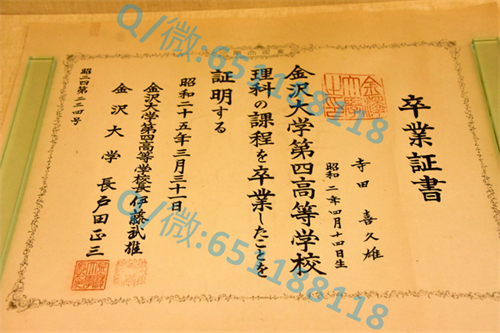 卒業証書
寺田 喜久雄
昭和二年四月十四日生
金沢大学第四高等学校
理科の課程を卒業したことを
証明する
昭和二十五年三月三十一日
金沢大学第四高等学校長 伊藤武雄
金沢大学長 戸田正三
昭二四第二三四号
Q/微:651188118
Q/微:651188118
Q/微:651188118